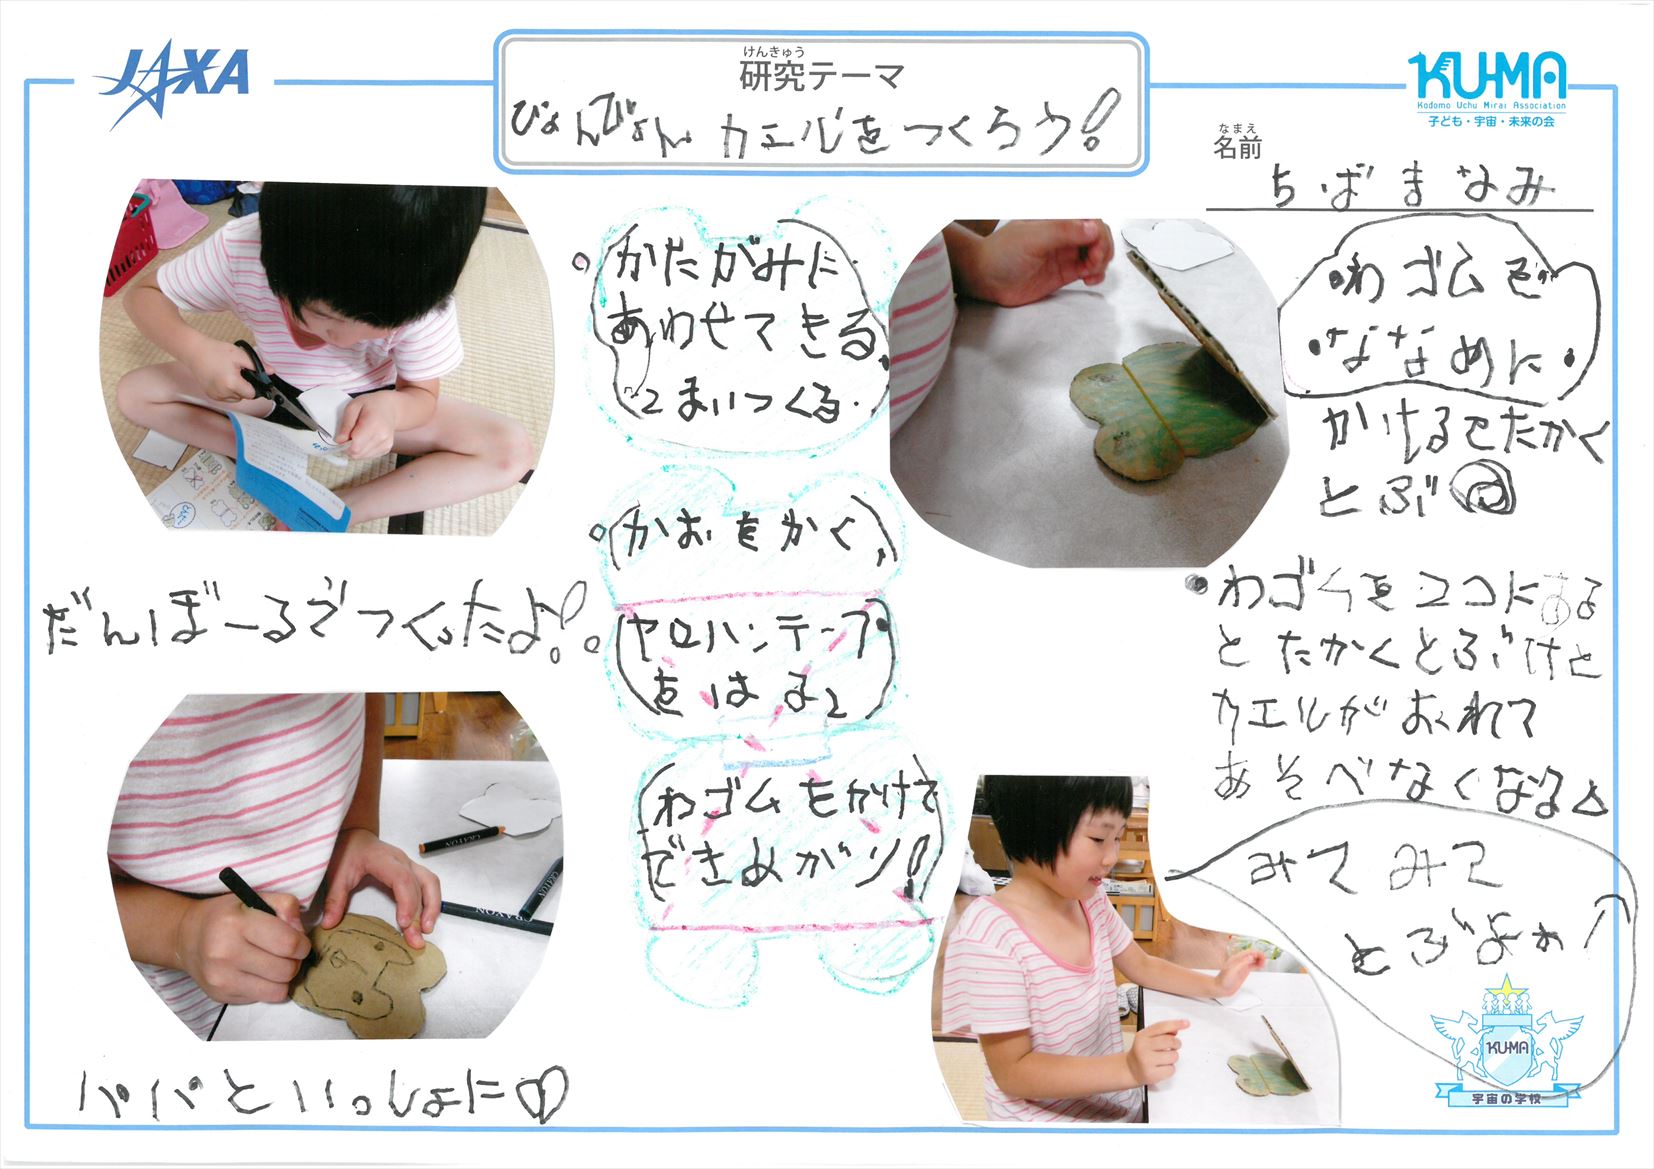 JAXA
けんきゅう
研究テーマ
ぴょんぴょんカエルをつくろう!
KU-MA
Kodomo Uchu Mirai Association
子ども・宇宙・未来の会
なまえ
名前
ちばまなみ
かたがみに
あわせてきる
2まいつくる
かおをかく
セロハンテープ
をはる
わゴムをかけて
できあがり!
だんぼーるでつくったよ!
パパといっしょに♡
わゴムを
ななめに
かけるとたかく
とぶ
わゴムをココにある
とたかくとぶけど
カエルがおれて
あそべなくなる
みてみて
とぶよ
KU-MA
宇宙の学校
CRAYON
CRAYON
CRAYON